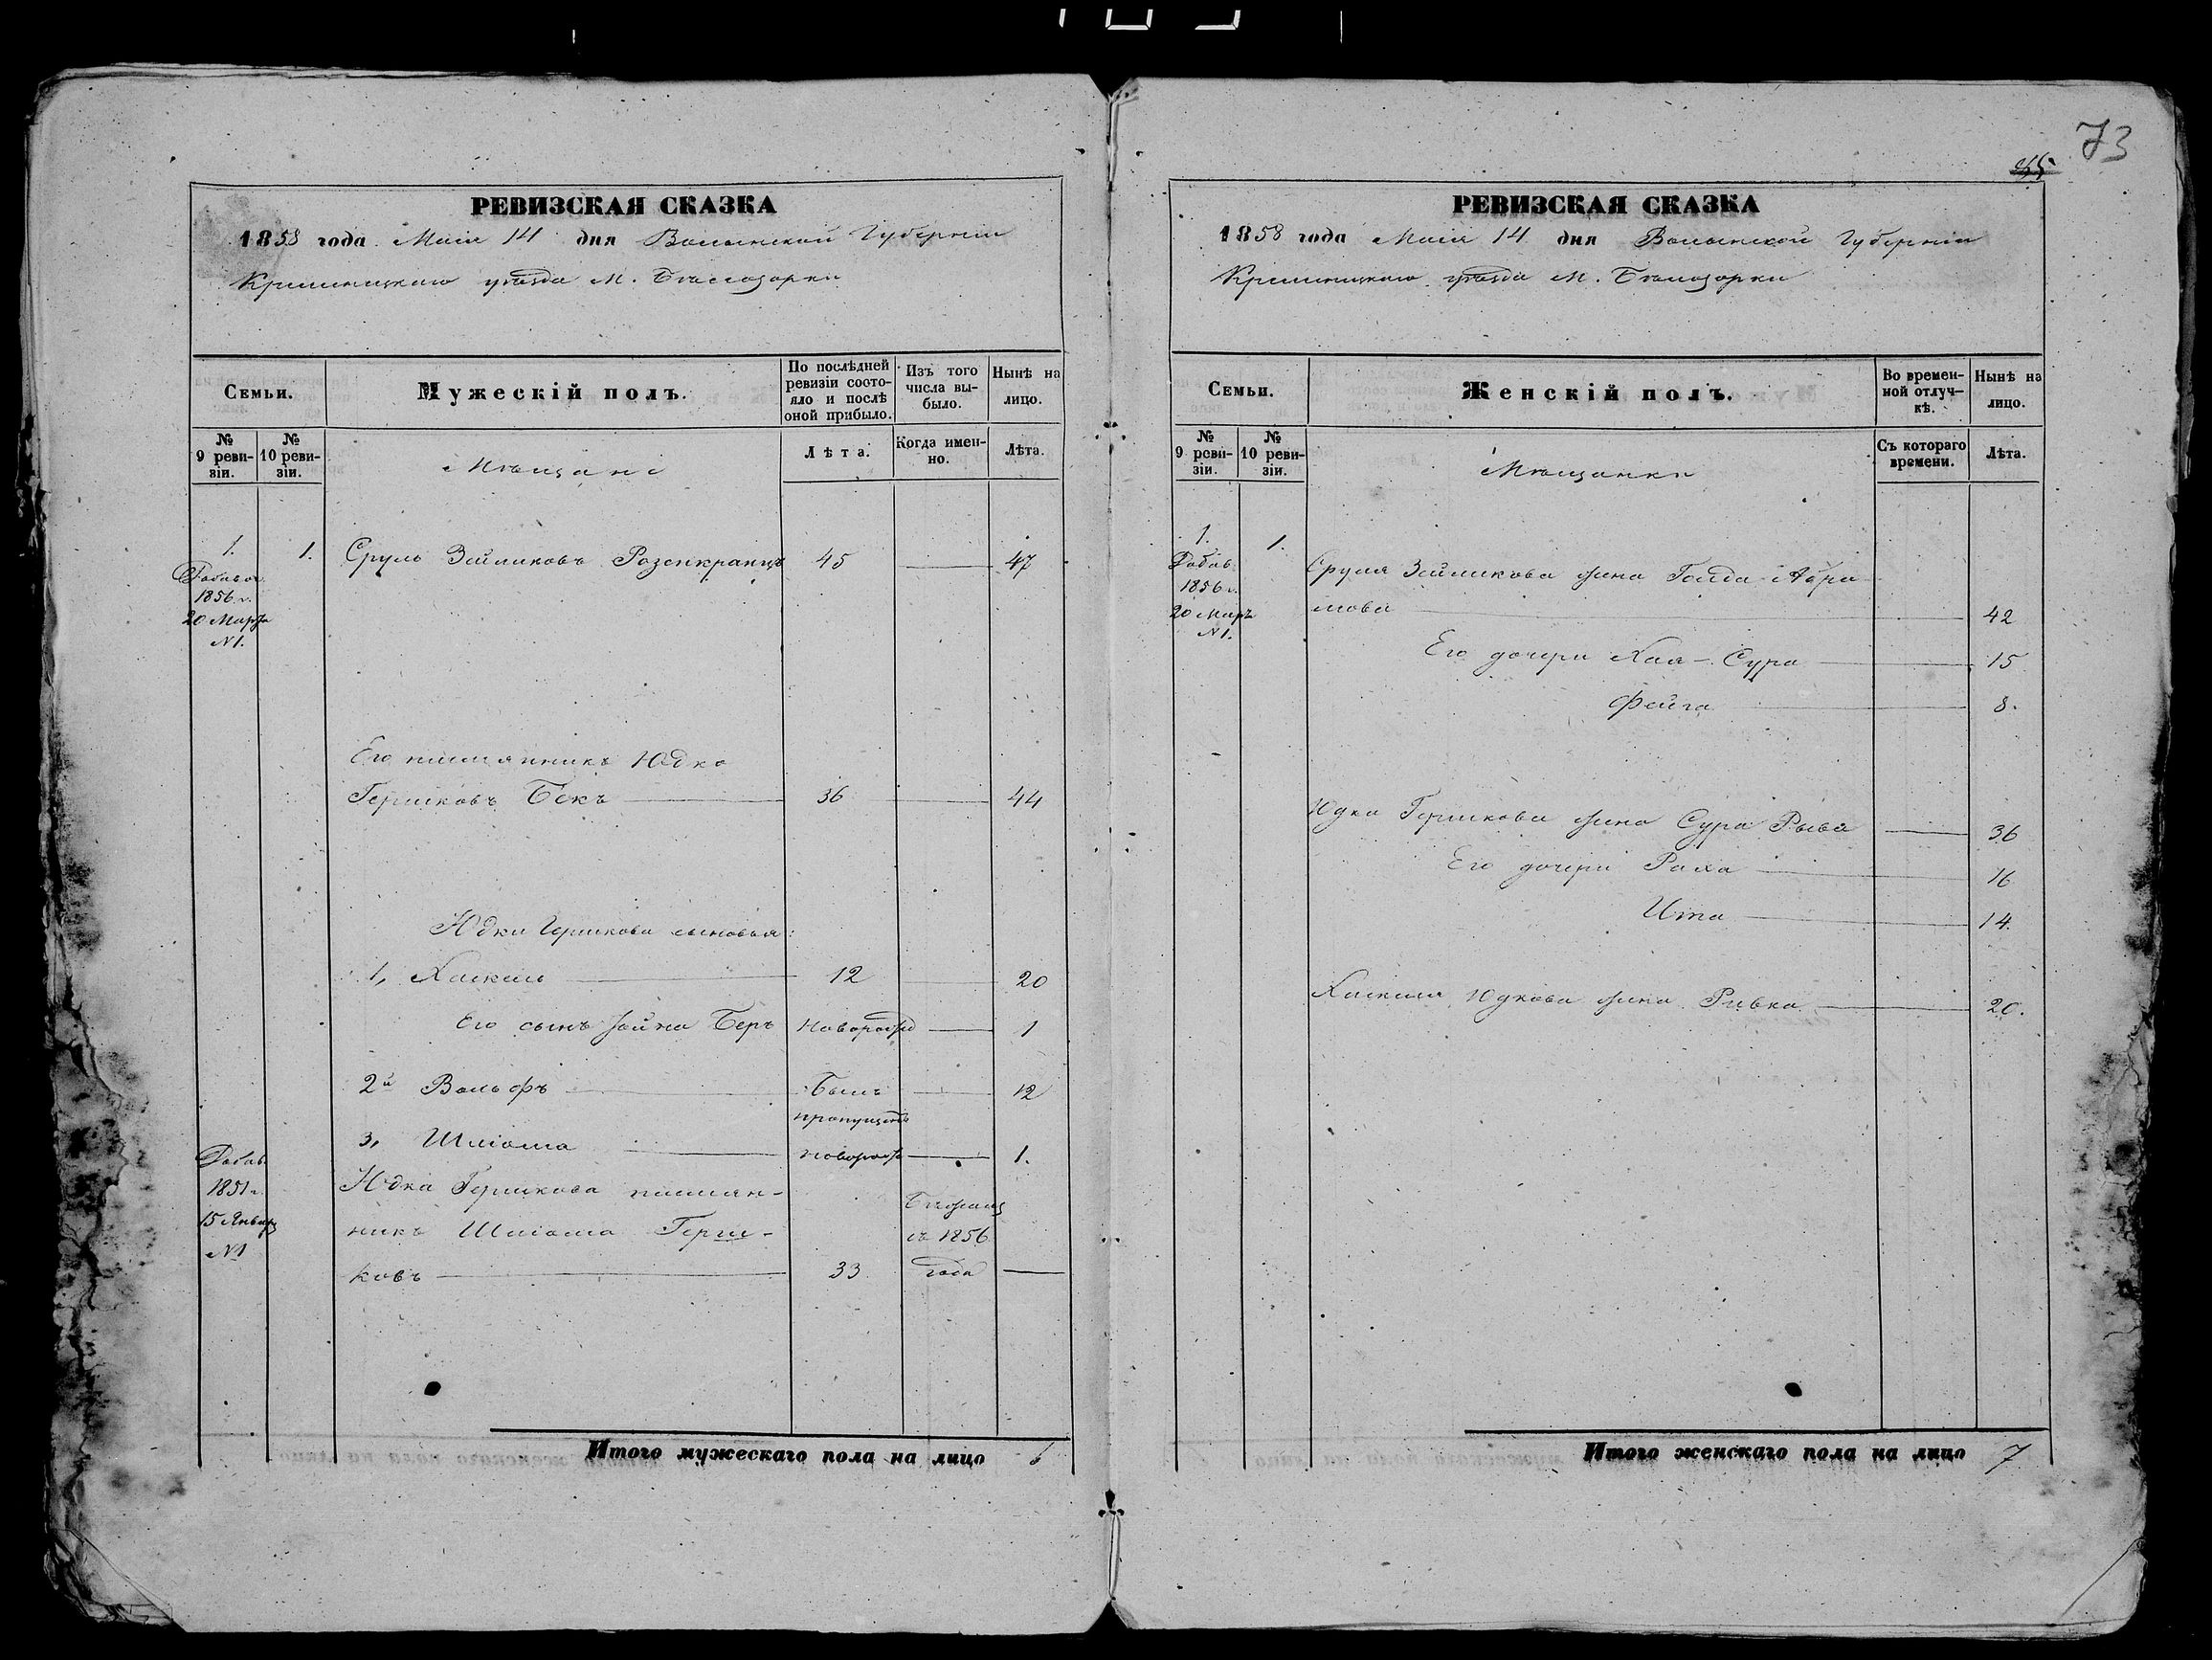 73
РЕВИЗСКАЯ СКАЗКА
1858 года Маія 14 дня Волынской Губерніи
Кременецкаго уѣзда М. Бѣлозорки
Семьи.
Мужескій полъ.
По послѣдней ревизіи состояло и послѣ оной прибыло.
Изъ того числа выбыло.
Нынѣ на лицо.
№ 9 ревизіи.
№ 10 ревизіи.
Мѣщане
Лѣта.
Когда именно.
Лѣта.
1. 1. Сруль Зейликовъ Розенкранцъ 45 — 47
Добавоч.
1856 г.
20 Марта
№ 1.
Его племянникъ Юдко
Гершковъ Бекъ — 36 — 44
Юдки Гершкова сыновья:
1, Хаскель — 12 — 20
Его сынъ Іойна Беръ Новорожд — 1
2й Вольфъ — Былъ — 12
пропущенъ
3, Шліома — новорож — 1.
Добав.
1851 г.
15 Январ
№ 1
Юдка Гершкова племян-
никъ Шліома Герш-
ковъ — 33 —
съ 1856
года
Итого мужескаго пола на лицо 6
РЕВИЗСКАЯ СКАЗКА
1858 года Маія 14 дня Волынской Губерніи
Кременецкаго уѣзда М. Бѣлозорки
Семьи.
Женскій полъ.
Во временной отлучкѣ.
Нынѣ на лицо.
№ 9 ревизіи.
№ 10 ревизіи.
Мѣщанки
Съ котораго времени.
Лѣта.
1. 1.
Добав.
1856 г.
20 Мартъ
№ 1.
Сруля Зейликова жена Гольда Абра-
мова — 42
Его дочери Хая-Сура — 15
Фейга — 8.
Юдка Гершкова жена Сура Рыва — 36
Его дочери Рахa — 16
Ита — 14.
Хаскеля Юдкова жена Ривка — 20.
Итого женскаго пола на лицо 7